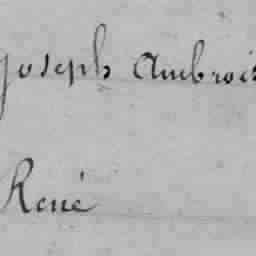 Joseph Ambrois
René